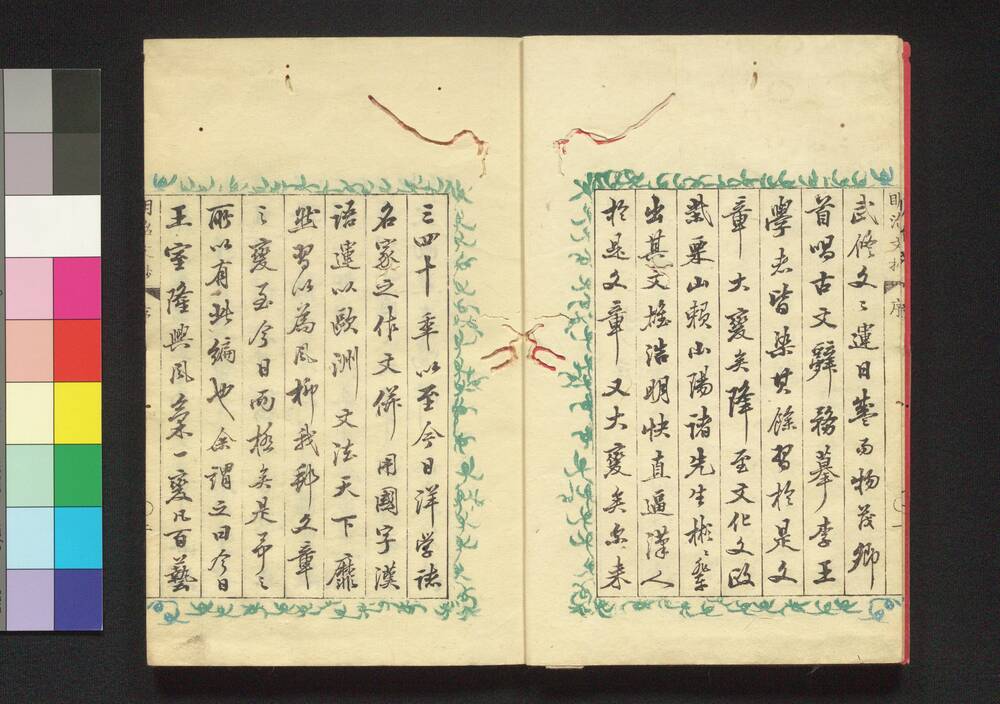 武修文之運日盛而物茂卿
首唱古文辭務摹李王
學者皆染其餘習於是文
章大變矣降至文化文政
柴栗山賴山陽諸先生彬〻輩
出其文雄浩明快直逼漢人
於是文章又大變矣尔来
三四十年以至今日洋学諸
名家之作文併用國字漢
語運以歐洲文法天下靡
然習以為風抑我邦文章
之變至今日而極矣是
所以有此編也余謂之曰今日
王室隆興風氣一變凡百藝